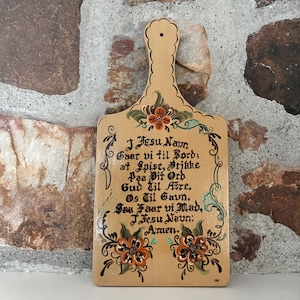 I Jesu Navn
Gaar vi til Bord;
at Spise, Drikke
Paa Dit Ord
Gud Til Ære,
Os Til Gavn,
Saa Faar vi Mad,
I Jesu Navn:
Amen.